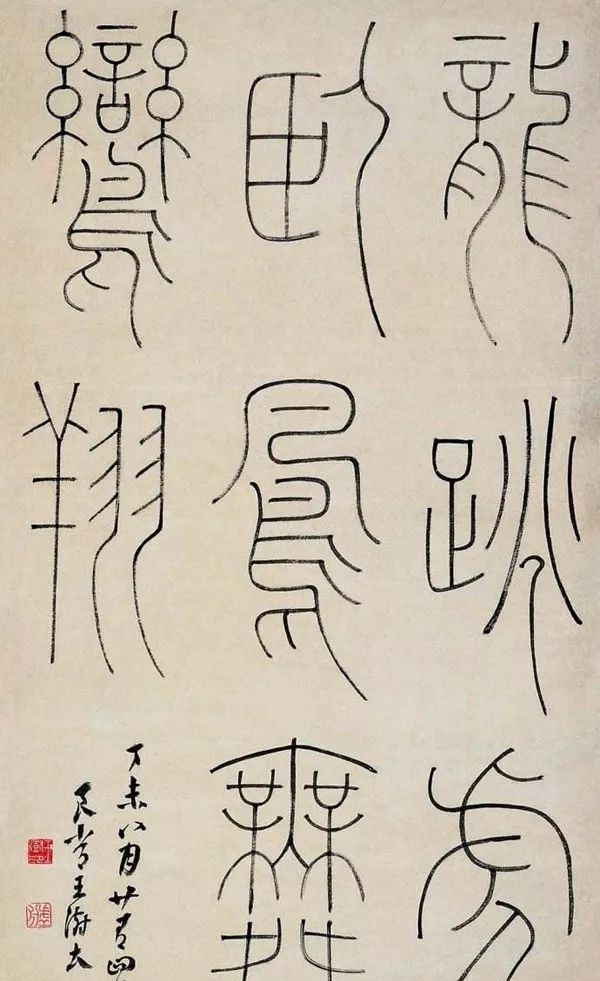 龍跳虎
臥鳳舞
鸞翔
丁未八月廿有四
良常王澍書